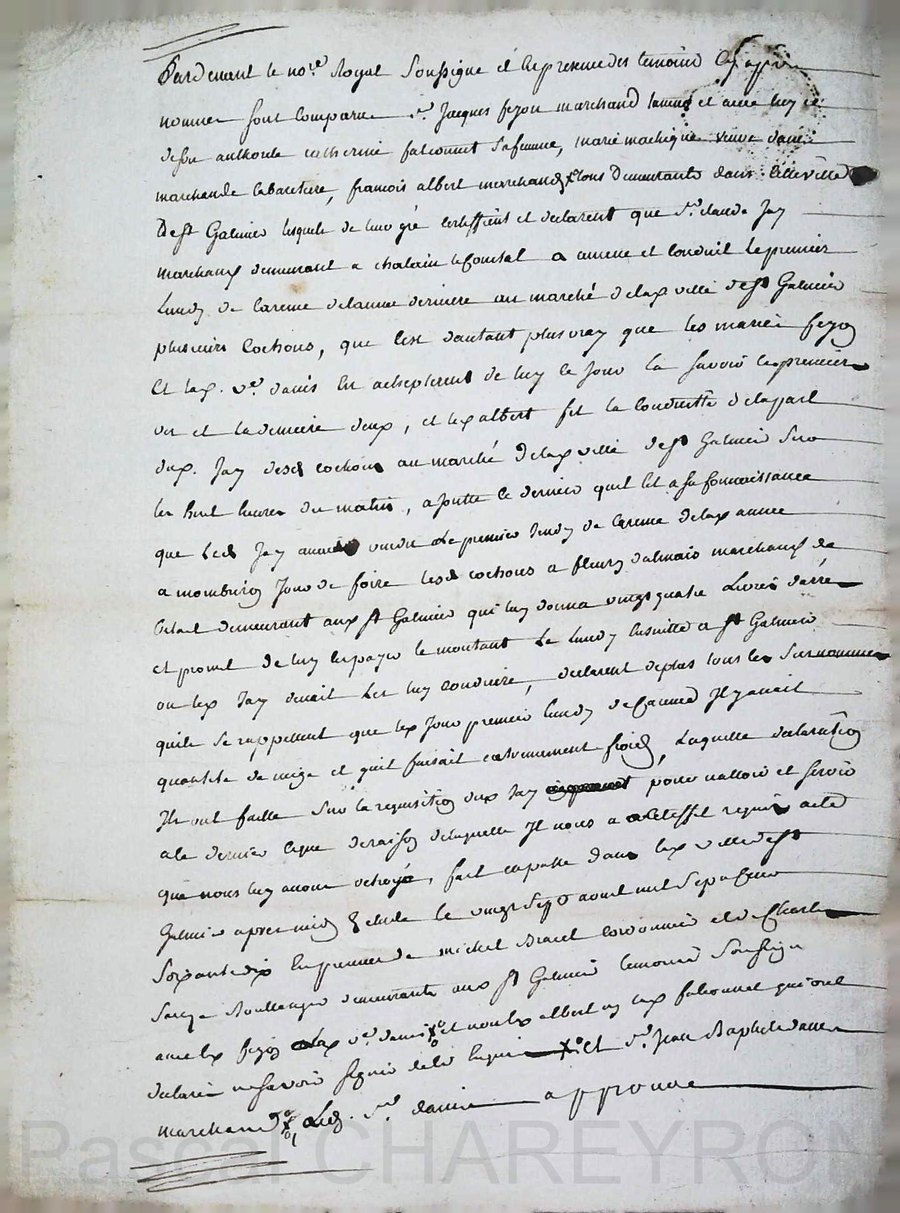 Pardevant le no.re Royal soussigné et en presence des temoins cy apres
nommes sont comparus s.r Jacques feyon marchand et avec luy ce
de son authorité catherine falconnet sa femme, marie veuve danis
marchande cabaretiere, francois albert marchand tous demeurants dans cette ville
De st Galmier lesquels de leur gré certiffient et declarent que s.r claude Jay
marchand demeurant a chalain le comtal a amené et conduit le premier
Lundy de careme de l'année derniere au marché de lad ville de st Galmier
plusieurs cochons, que c'est d'autant plus vray que les mariés feyon
Et lad. v.e danis en achepterent de luy ce jour la savoir les premiers
un et la derniere deux, et led albert fit la conduitte de la part
dud. Jay desd cochons au marché de lad ville de st Galmier sur
les huit heures du matin, ajoutte ce dernier qu'il est a sa connaissance
que led Jay avait vendu le premier Jeudy de careme de lad année
a montbrison jour de foire lesd cochons a fleury dalmais marchand de
betail demeurant aud st Galmier qui luy donna vingt quatre Livres d'arre
et promit de luy en payer le montant le Lundy ensuitte a st Galmier
ou led Jay devait les luy conduire, declarent de plus tous les surnommés
qu'ils se rappellent que led jour premier lundy de Careme Il y avait
quantité de neige et qu'il faisait extremement froid, laquelle declaration
Ils ont faitte sur la requisition dud Jay pour valloir et servir
a ce dernier ce que de raison de laquelle Il nous a a cet effet requis acte
que nous luy avons octroyé, fait et passé dans lad ville de st
Galmier apres midy le vingt sept aoust mil sept cent
soixante dix en presence de michel cordonnier et de Charles
Boullanger demeurants aud st Galmier temoins soussignes
avec led feyon lad v.e danis et non led albert ny lad falconnet qui ont
declaré ne savoir signer de ce enquis et s.r Jean Baptiste danis
marchand Led. s.r danis approuvé
Pascal CHAREYRON